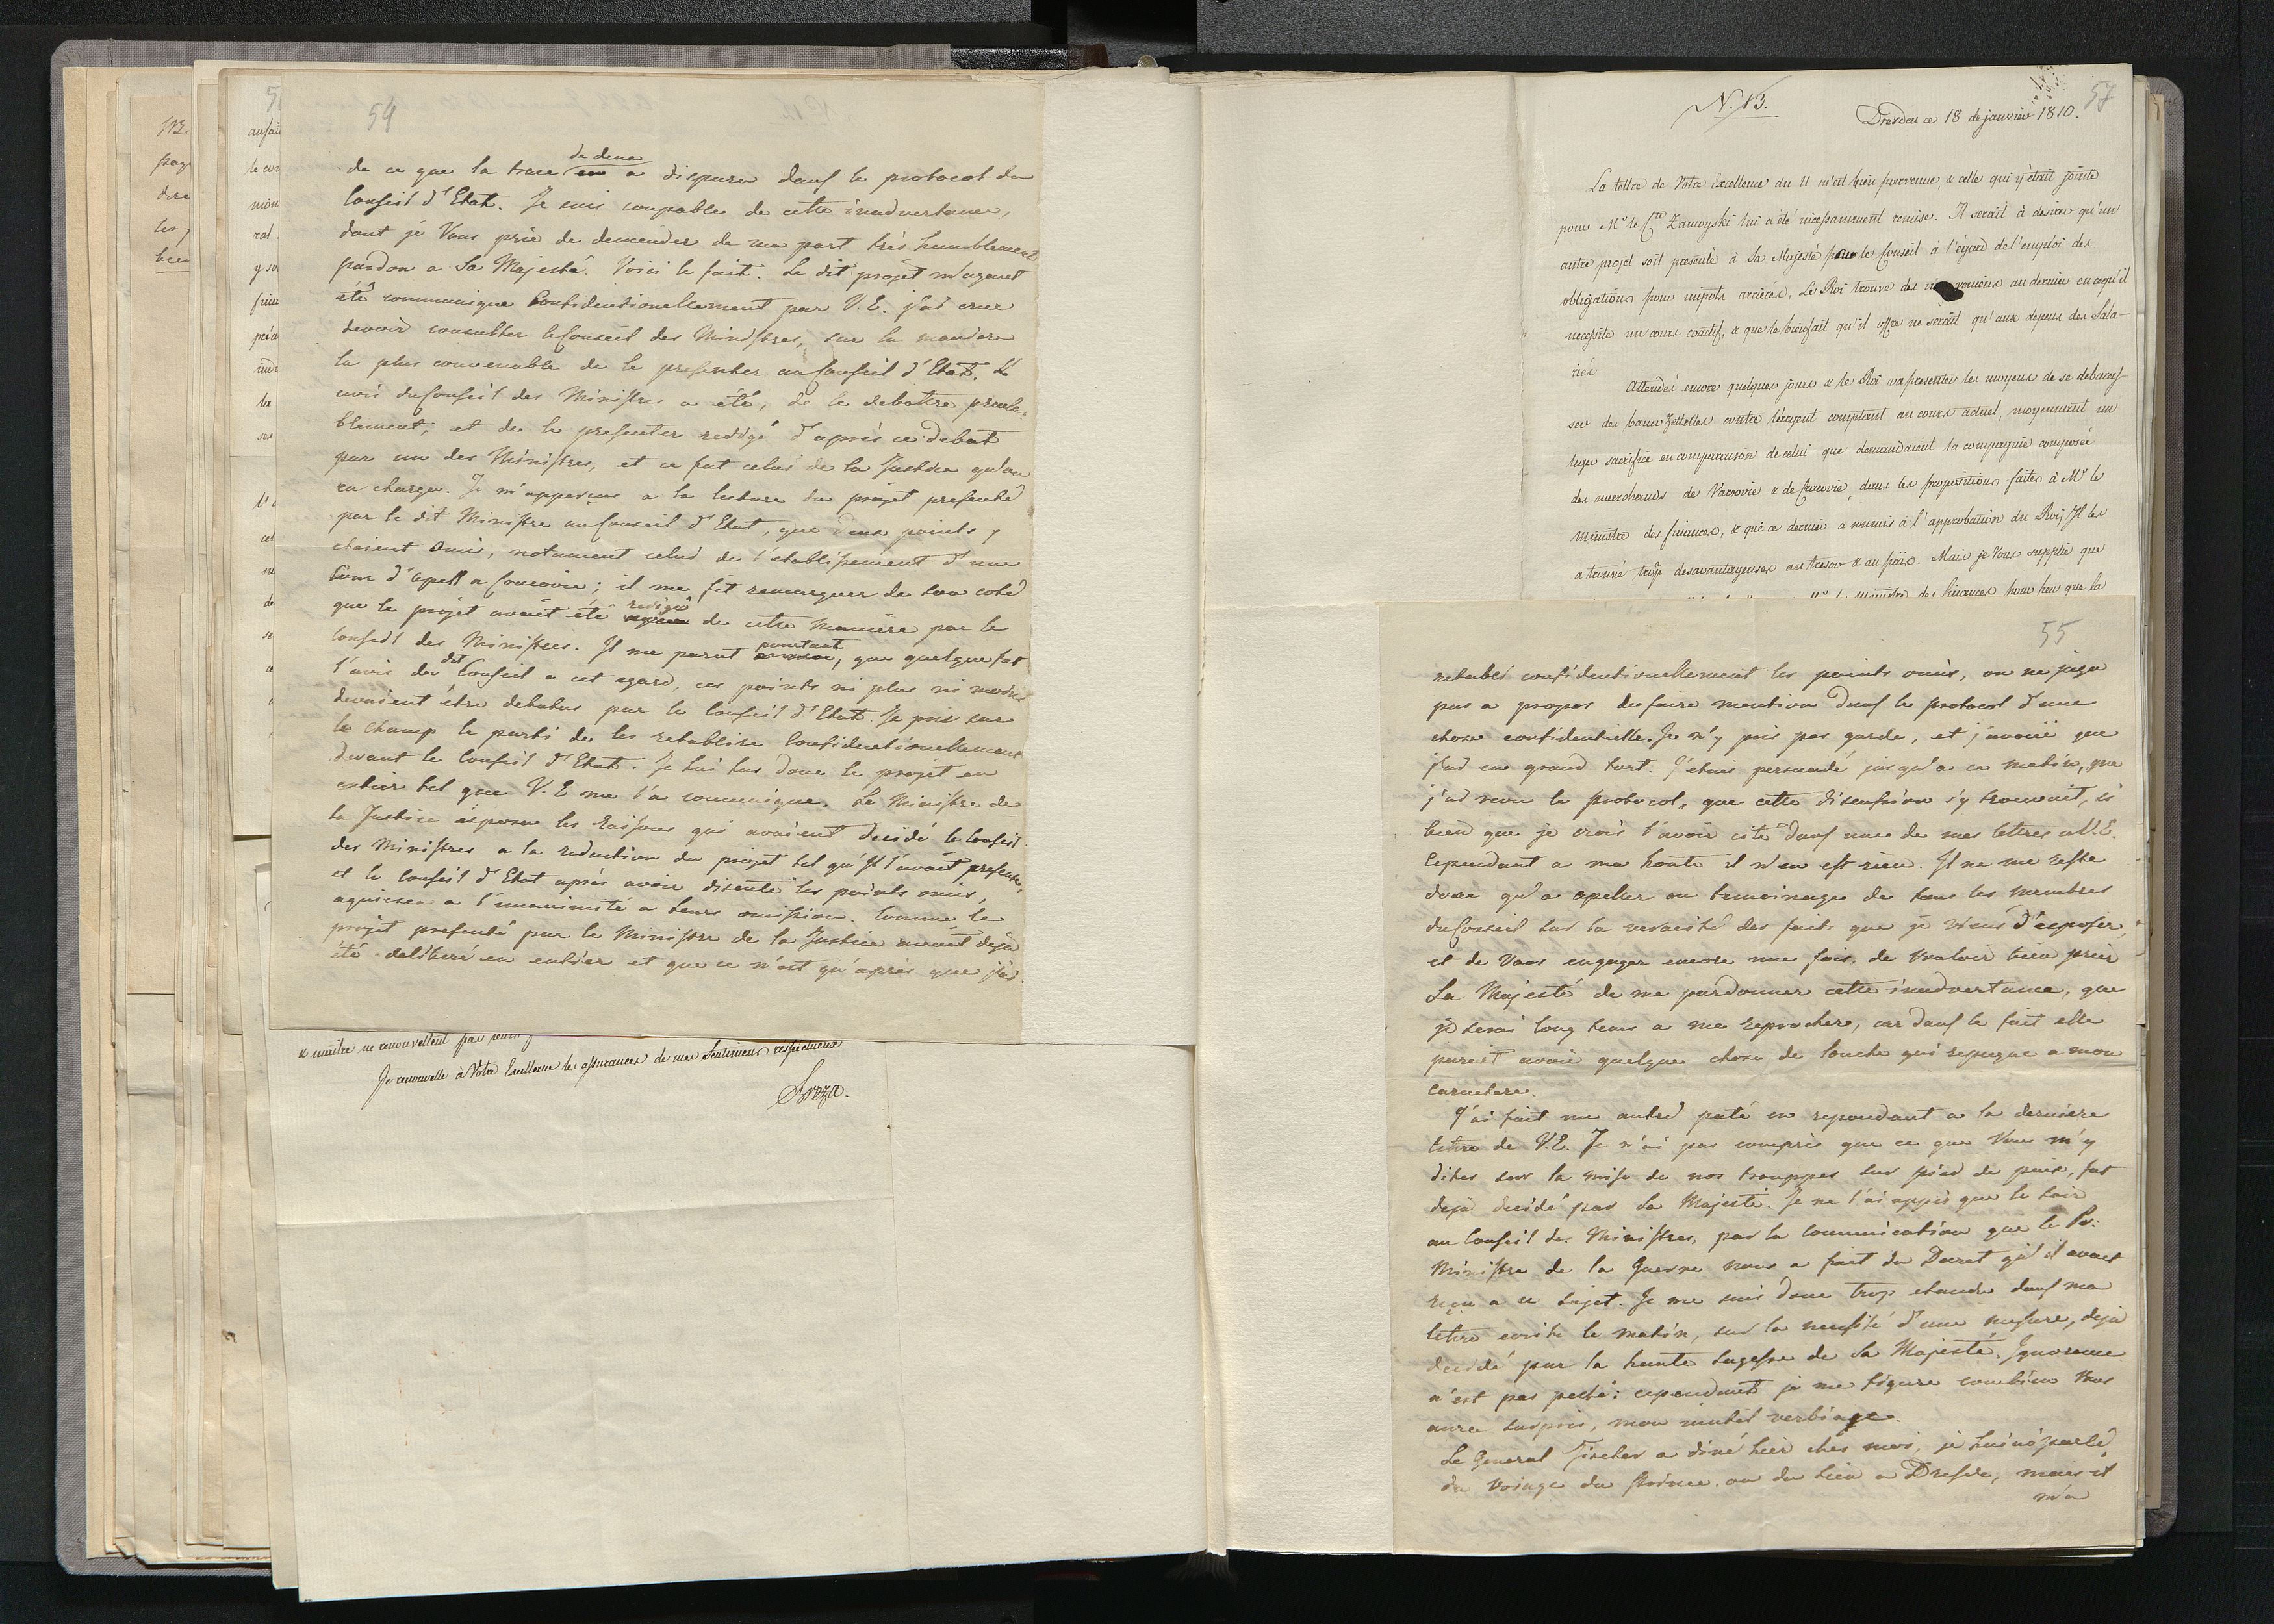 54
de ce que la trace de deux a disparu dans le protocol du
Conseil d'Etat. Je suis coupable de cette inadvertance,
dont je Vous prie de demander de ma part très humblement
pardon a Sa Majesté. Voici le fait. Le dit projet m'ayant
été communique Confidentionellement par V.E. j'ai crue
devoir consulter le Conseil des Ministres, sur la maniere
la plus convenable de le presenter au Conseil d'Etat. L'
avis du Conseil des Ministres a été, de le debattre preala-
blement, et de le presenter redigé d'après ce debat
par un des Ministres, et ce fut celui de la Justice qu'on
en chargea. Je m'apperçus a la lecture du projet presenté
par le dit Ministre au Conseil d'Etat, que deux points y
etaient omis, notament celui de l'etablissement d'une
Cour d'apell a Cracovie; il me fit remarquer de son coté
que le projet avait été redigé de cette maniere par le
Conseil des Ministres. Il me parut pourtant, que quelque fut
l'avis du dit Conseil a cet egard, ces points ni plus ni moins
devaient être debatus par le Conseil d'Etat. Je pris sur
le champ le parti de les retablire Confidentionellement
devant le Conseil d'Etat. Je lui lus donc le projet en
entier tel que V.E me l'a communique. Le Ministre de
la Justice exposa les raisons qui avaient decidé le Conseil
des Ministres a la reduction du projet tel qu'il l'avait presenté,
et le Conseil d'Etat après avoir discuté les points omis,
aquiesça a l'unanimité a leurs omission. Comme le
projet presenté par le Ministre de la Justice avait deja
été deliberé en entier et que ce n'est qu'après que j'ai
& maitre ne renouvellent pas
Je renouvelle à Votre Excellence les assurances de mes Sentimens respectueux
Breza.
N. 13.
57
Dresden ce 18 de janvier 1810.
La lettre de Votre Excellence du 11 m'est bien parvenue, & celle qui y était jointe
pour Mr le Cte Zamoyski lui a été incessamment remise. Il serait à desirer qu'un
autre projet soit presenté à Sa Majesté par le Conseil à l'égard de l'emploi des
obligations pour impots arrierés, Le Roi trouve des au dernier en ce qu'il
necessite un cours coactif, & que le bienfait qu'il offre ne serait qu'aux depens des Sala-
riés
Attendés encore quelques jours & le Roi va presenter les moyens de se debaras-
ser des billets contre l'argent comptant au cours actuel, moyennant un
leger sacrifice en comparaison de celui que demandaient la compagnie composée
des marchands de Varsovie & de Cracovie, dans les propositions faites à Mr le
ministre des finances, & que ce dernier a soumis à l'approbation du Roi, Il les
a trouvé trop desavantageuses au tresor & au païs. Mais je Vous supplie que
55
retabli confidentionellement les points omis, on ne jugea
pas a propos de faire mention dans le protocol d'une
chose confidentielle. Je n'y pris pas garde, et j'avoüe que
j'ai eu grand tort. J'etais persuadé jusqu'a ce matin, que
j'ai revu le protocol, que cette discussion s'y trouvait, si
bien que je crois l'avoir cité dans une de mes lettres a V.E.
Cependant a ma honte il n'en est rien. Il ne me reste
donc qu'a apeller au temoinage de tous les membres
du Conseil sur la veracité des faits que je viens d'exposer,
et de Vous engager encore une fois, de vouloir bien prier
Sa Majesté de me pardonner cette inadvertance, que
je serai long tems a me reprocher, car dans le fait elle
parait avoir quelque chose de louche qui repugne a mon
Caractere.
J'ai fait un autre paté en repondant a la derniere
lettre de V.E. Je n'ai pas compris que ce que Vous m'y
dites sur la mise de nos trouppes sur pied de paix, fut
deja decidé par Sa Majesté. Je ne l'ai appris que le soir
au Conseil des Ministres, par la Communication que le Pce
Ministre de la Guerre nous a fait du Decret qu'il avait
reçu a ce sujet. Je me suis donc trop etendu dans ma
lettre ecrite le matin, sur la necessité d'une mesure, deja
decidé par la haute sagesse de Sa Majesté. Ignorance
n'est pas peché: cependant je me figure combien Vous
aura surpris, mon inutil verbiage.
Le General Fischer a diné hier chez moi, je lui ai parlé
du voiage du Prince, ou du sien a Dresde, mais il
m'a